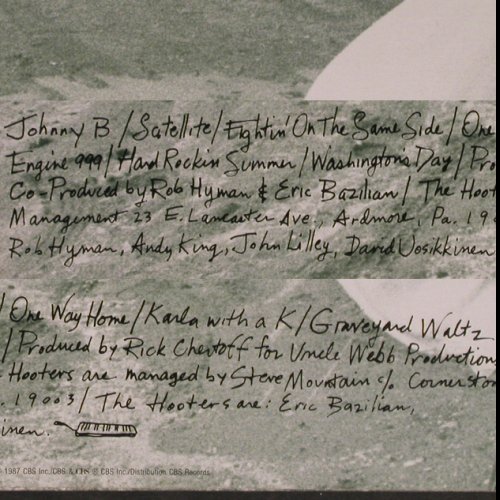 Johnny B / Satellite / Fightin' On The Same Side / One
Engine 999 / Hard Rockin Summer / Washington's Day / Pro
Co-Produced by Rob Hyman & Eric Bazilian / The Hoot
Management 23 E. Lancaster Ave., Ardmore, Pa. 19
Rob Hyman, Andy King, John Lilley, David Uosikkinen
/ One Way Home / Karla with a K / Graveyard Waltz
/ Produced by Rick Chertoff for Uncle Webb Production
Hooters are managed by Steve Mountain c/o Cornerston
. 19003 / The Hooters are: Eric Bazilian,
inen.
1987 CBS Inc./CBS & CBS ® CBS Inc./Distribution CBS Records